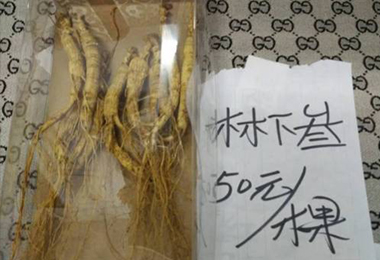 林下参
50元/
棵